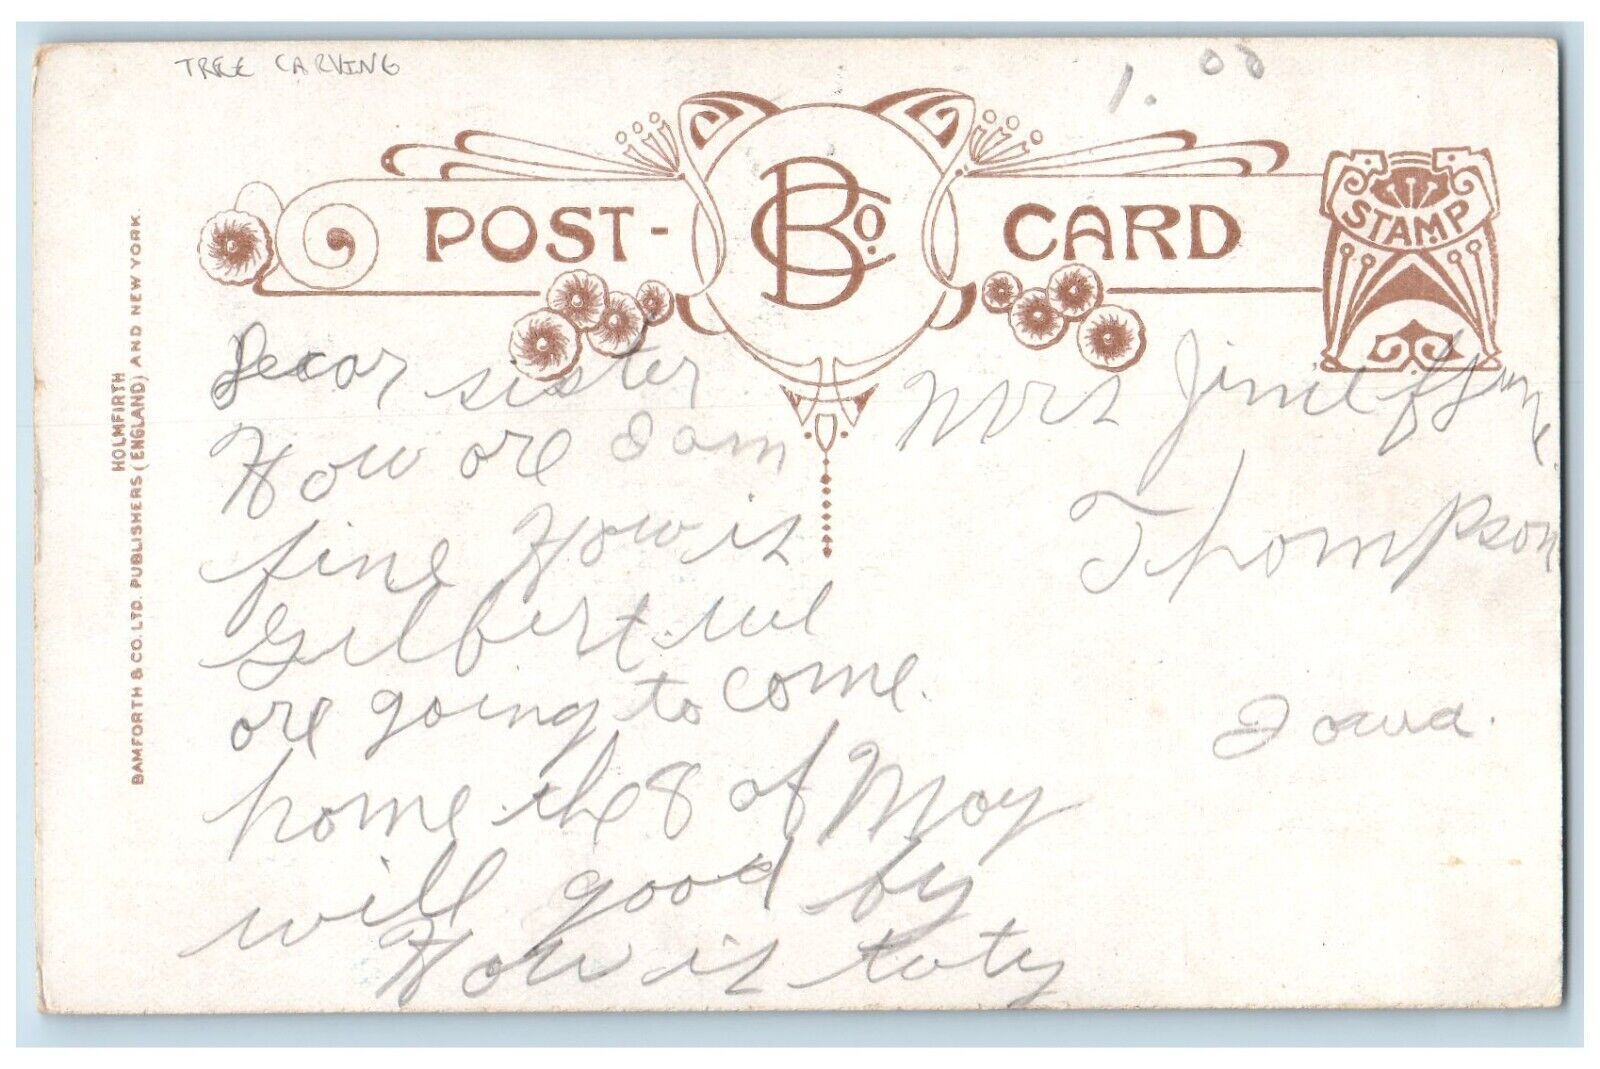 TREE CARVING
1.00
POST-
B Co.
CARD
STAMP
HOLMFIRTH
BAMFORTH & CO. LTD. PUBLISHERS (ENGLAND) AND NEW YORK.
Dear sister
How are I am
fine How is
Gilbert. 
are going to come.
home the 8 of May
will good by
How is tuty
Mrs
Thompson
Iowa.